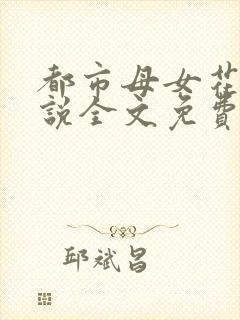 都市母女花
說全文免費
邱斌昌